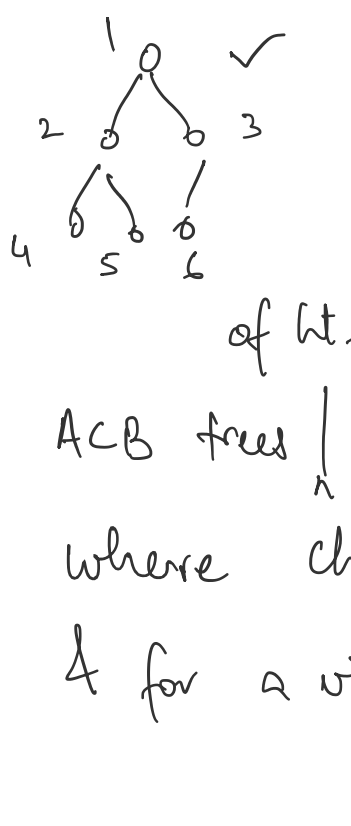 1
2 3
4 5 6
of ht.
ACB trees
n
where
for a